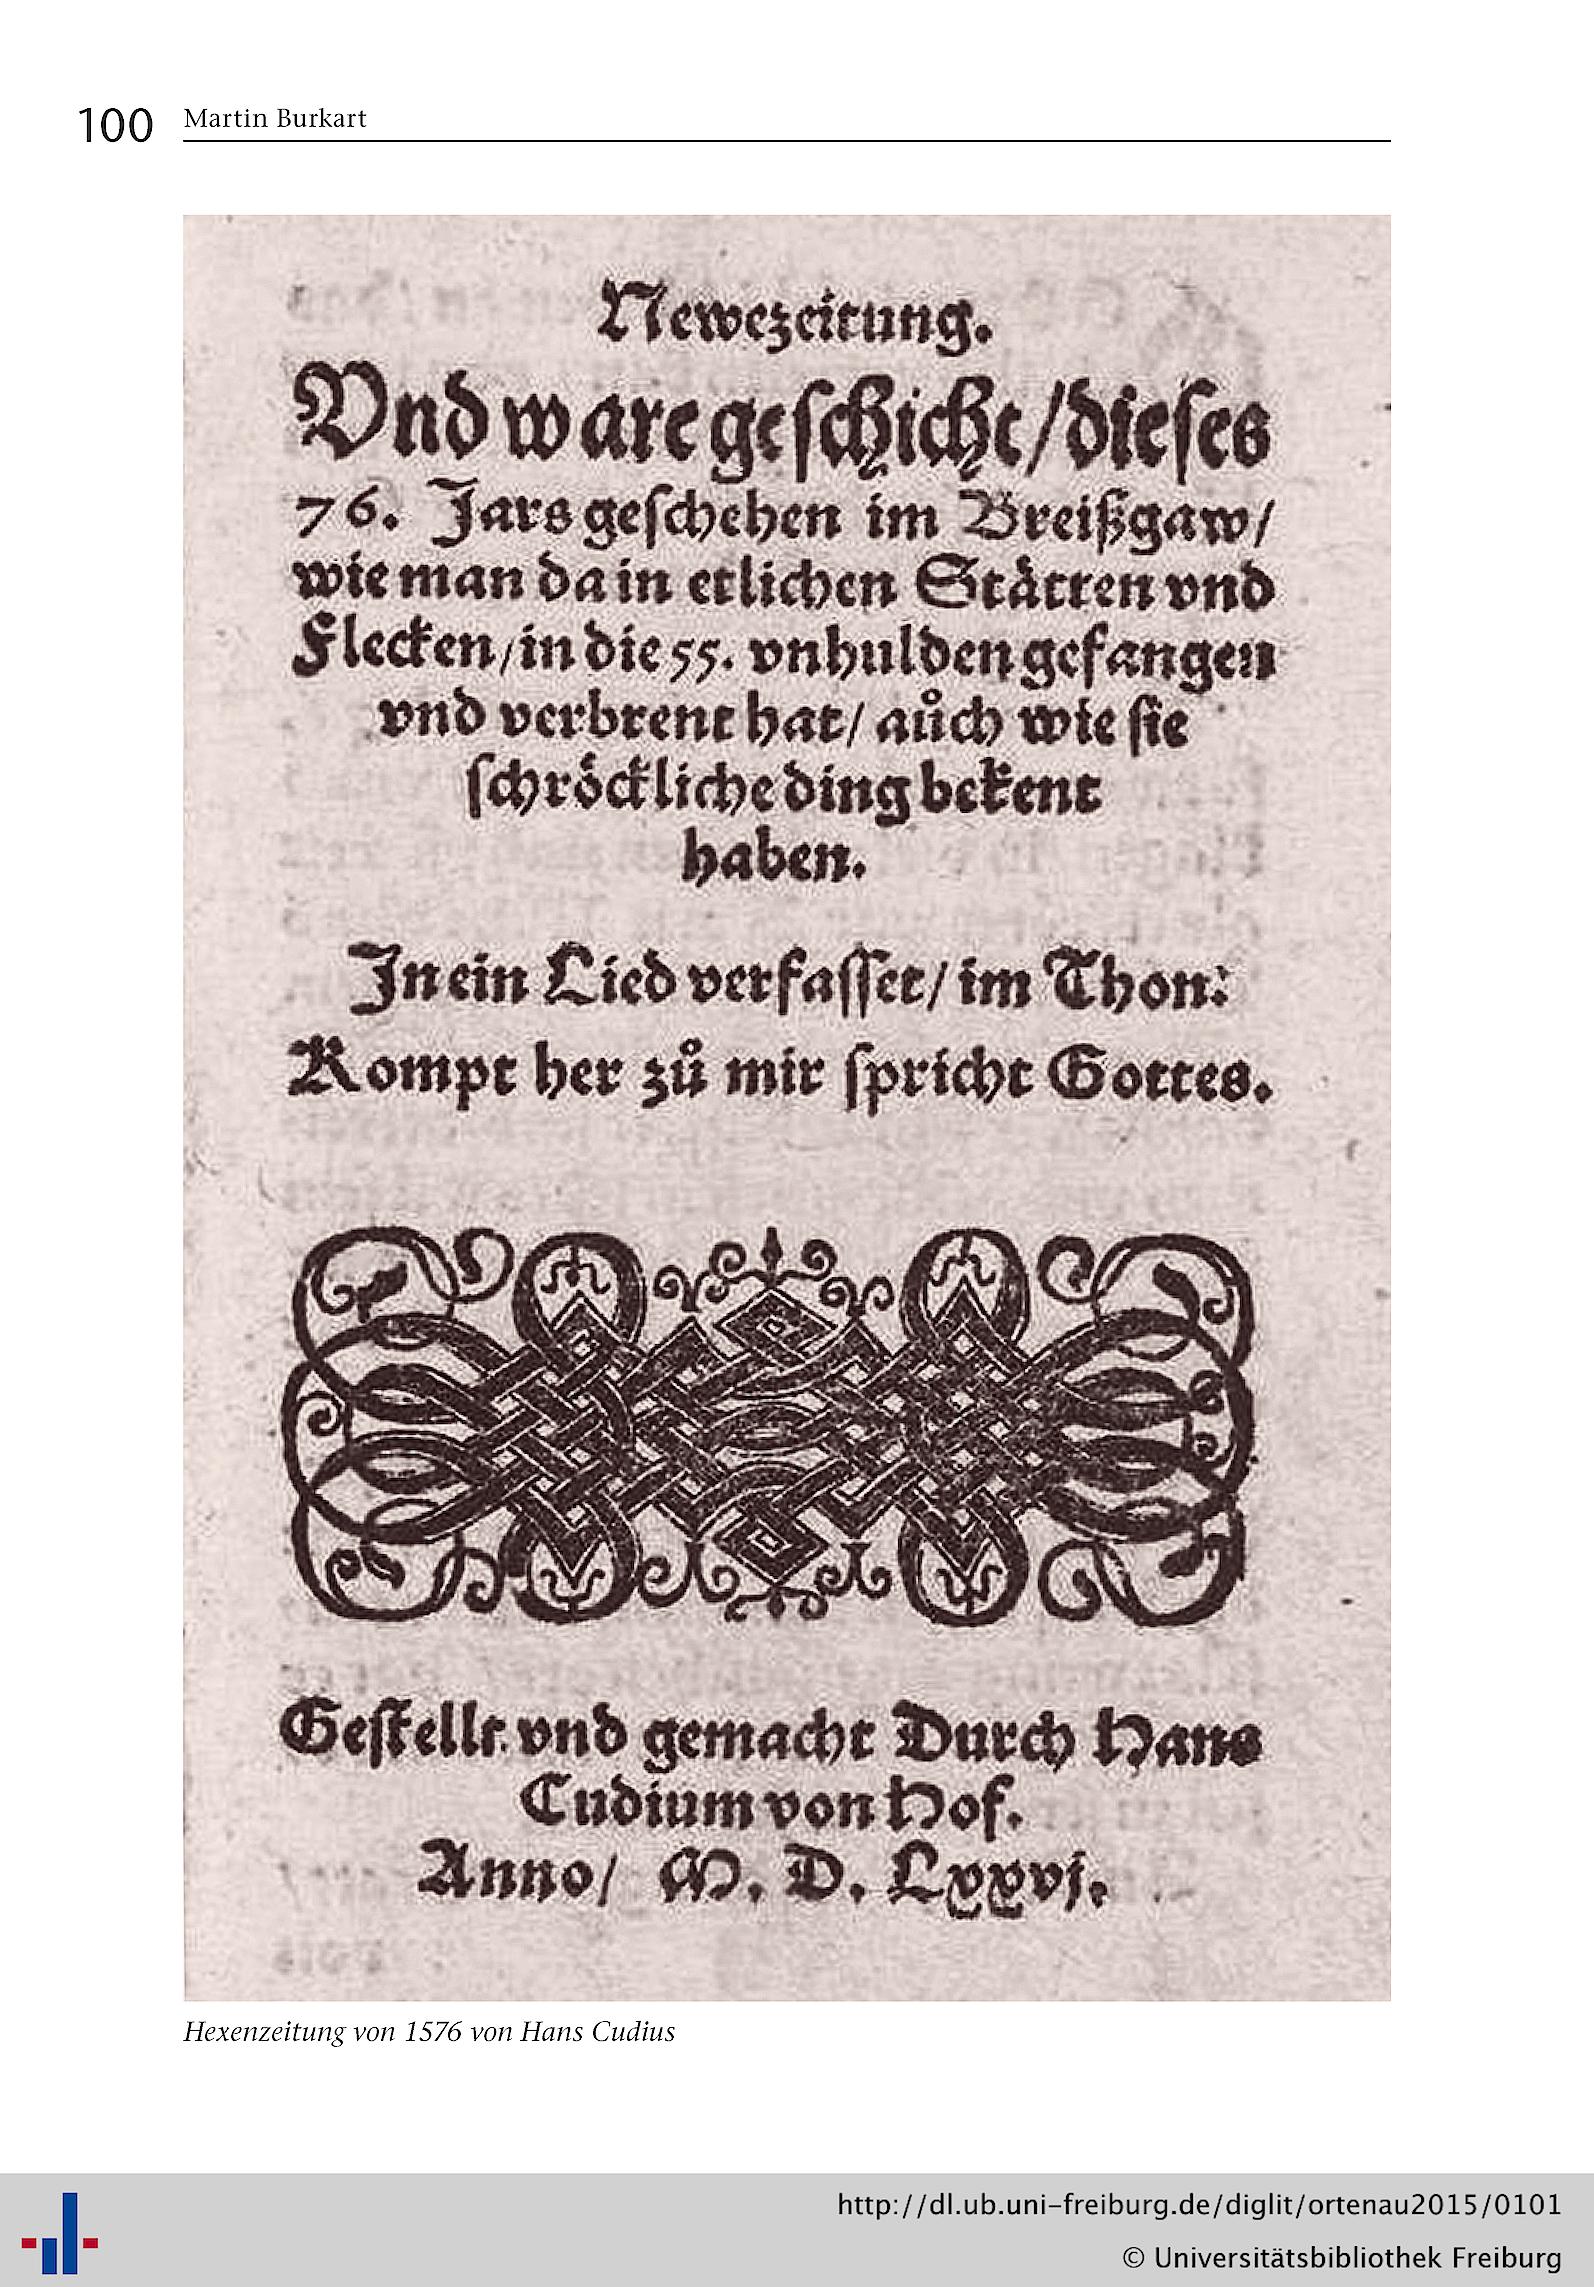 100 Martin Burkart
Newezeitung.
Vnd ware geschicht/dieses
76. Jars geschehen im Breißgaw/
wie man da in etlichen Stätten vnd
Flecken/in die 55. vnhulden gefangen
vnd verbrent hat/ aůch wie sie
schröckliche ding bekent
haben.
In ein Lied verfasset/ im Thon:
Kompt her zů mir spricht Gottes.
Gestellt vnd gemacht Durch Hans
Cudium von Hof.
Anno/ M. D. Lxxvj.
Hexenzeitung von 1576 von Hans Cudius
http://dl.ub.uni-freiburg.de/diglit/ortenau2015/0101
© Universitätsbibliothek Freiburg